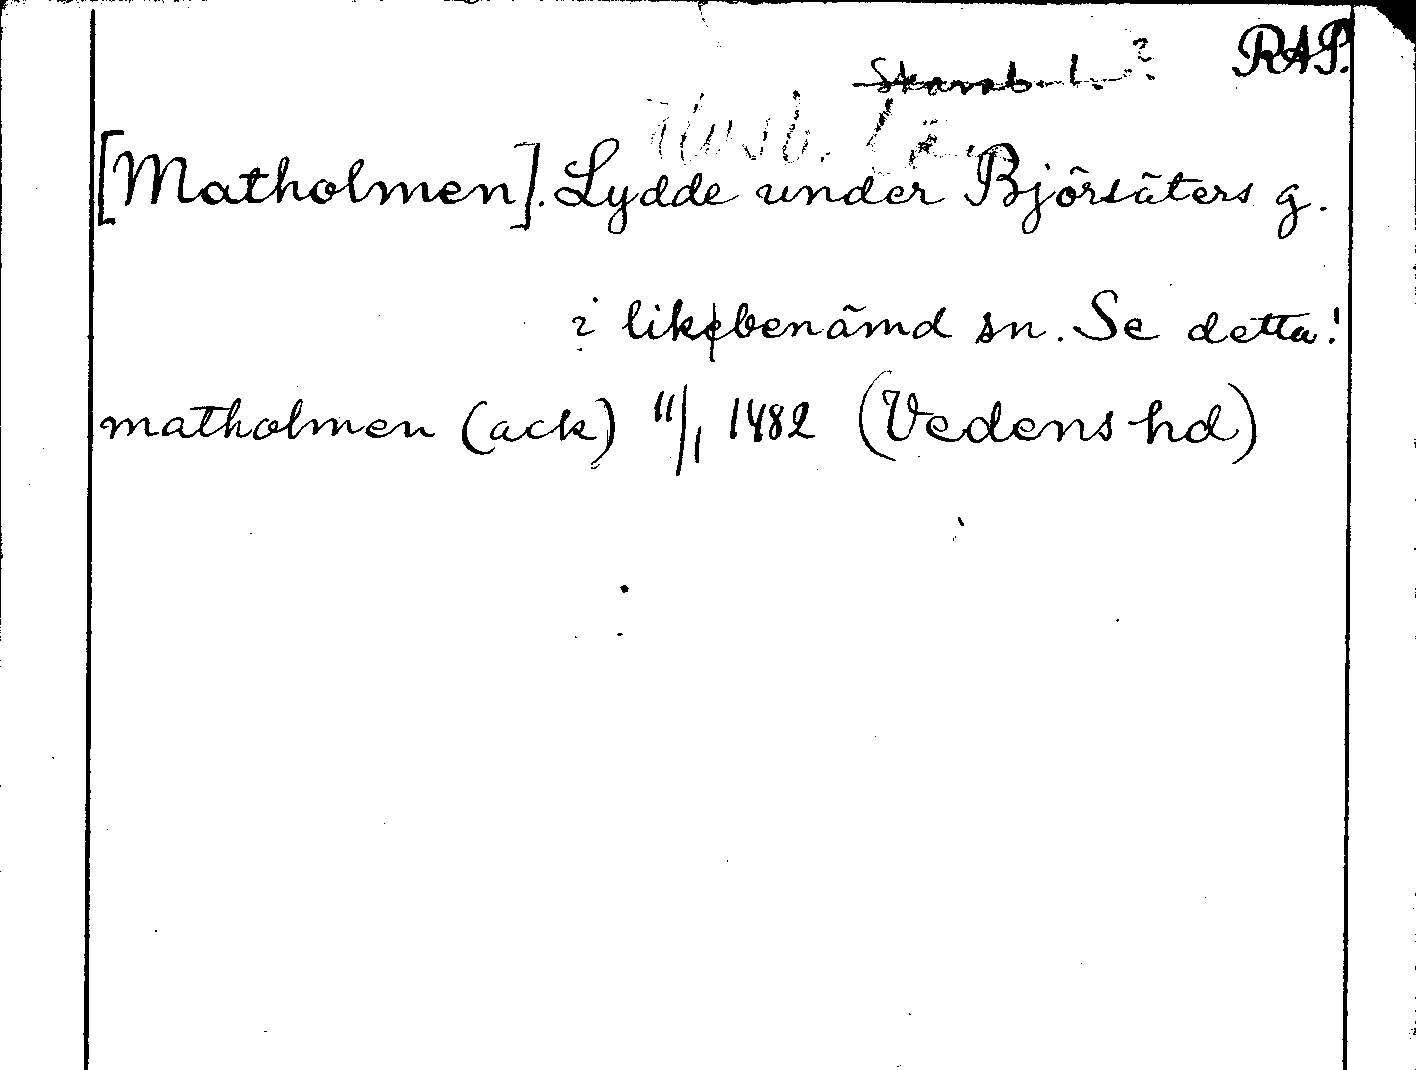 Skarab. l. ? RAP.
Älvsb. lä.
[Matholmen]. Lydde under Björsäters g.
i likabenämd sn. Se detta!
matholmen (ack) 11/1 1482 (Vedens hd)